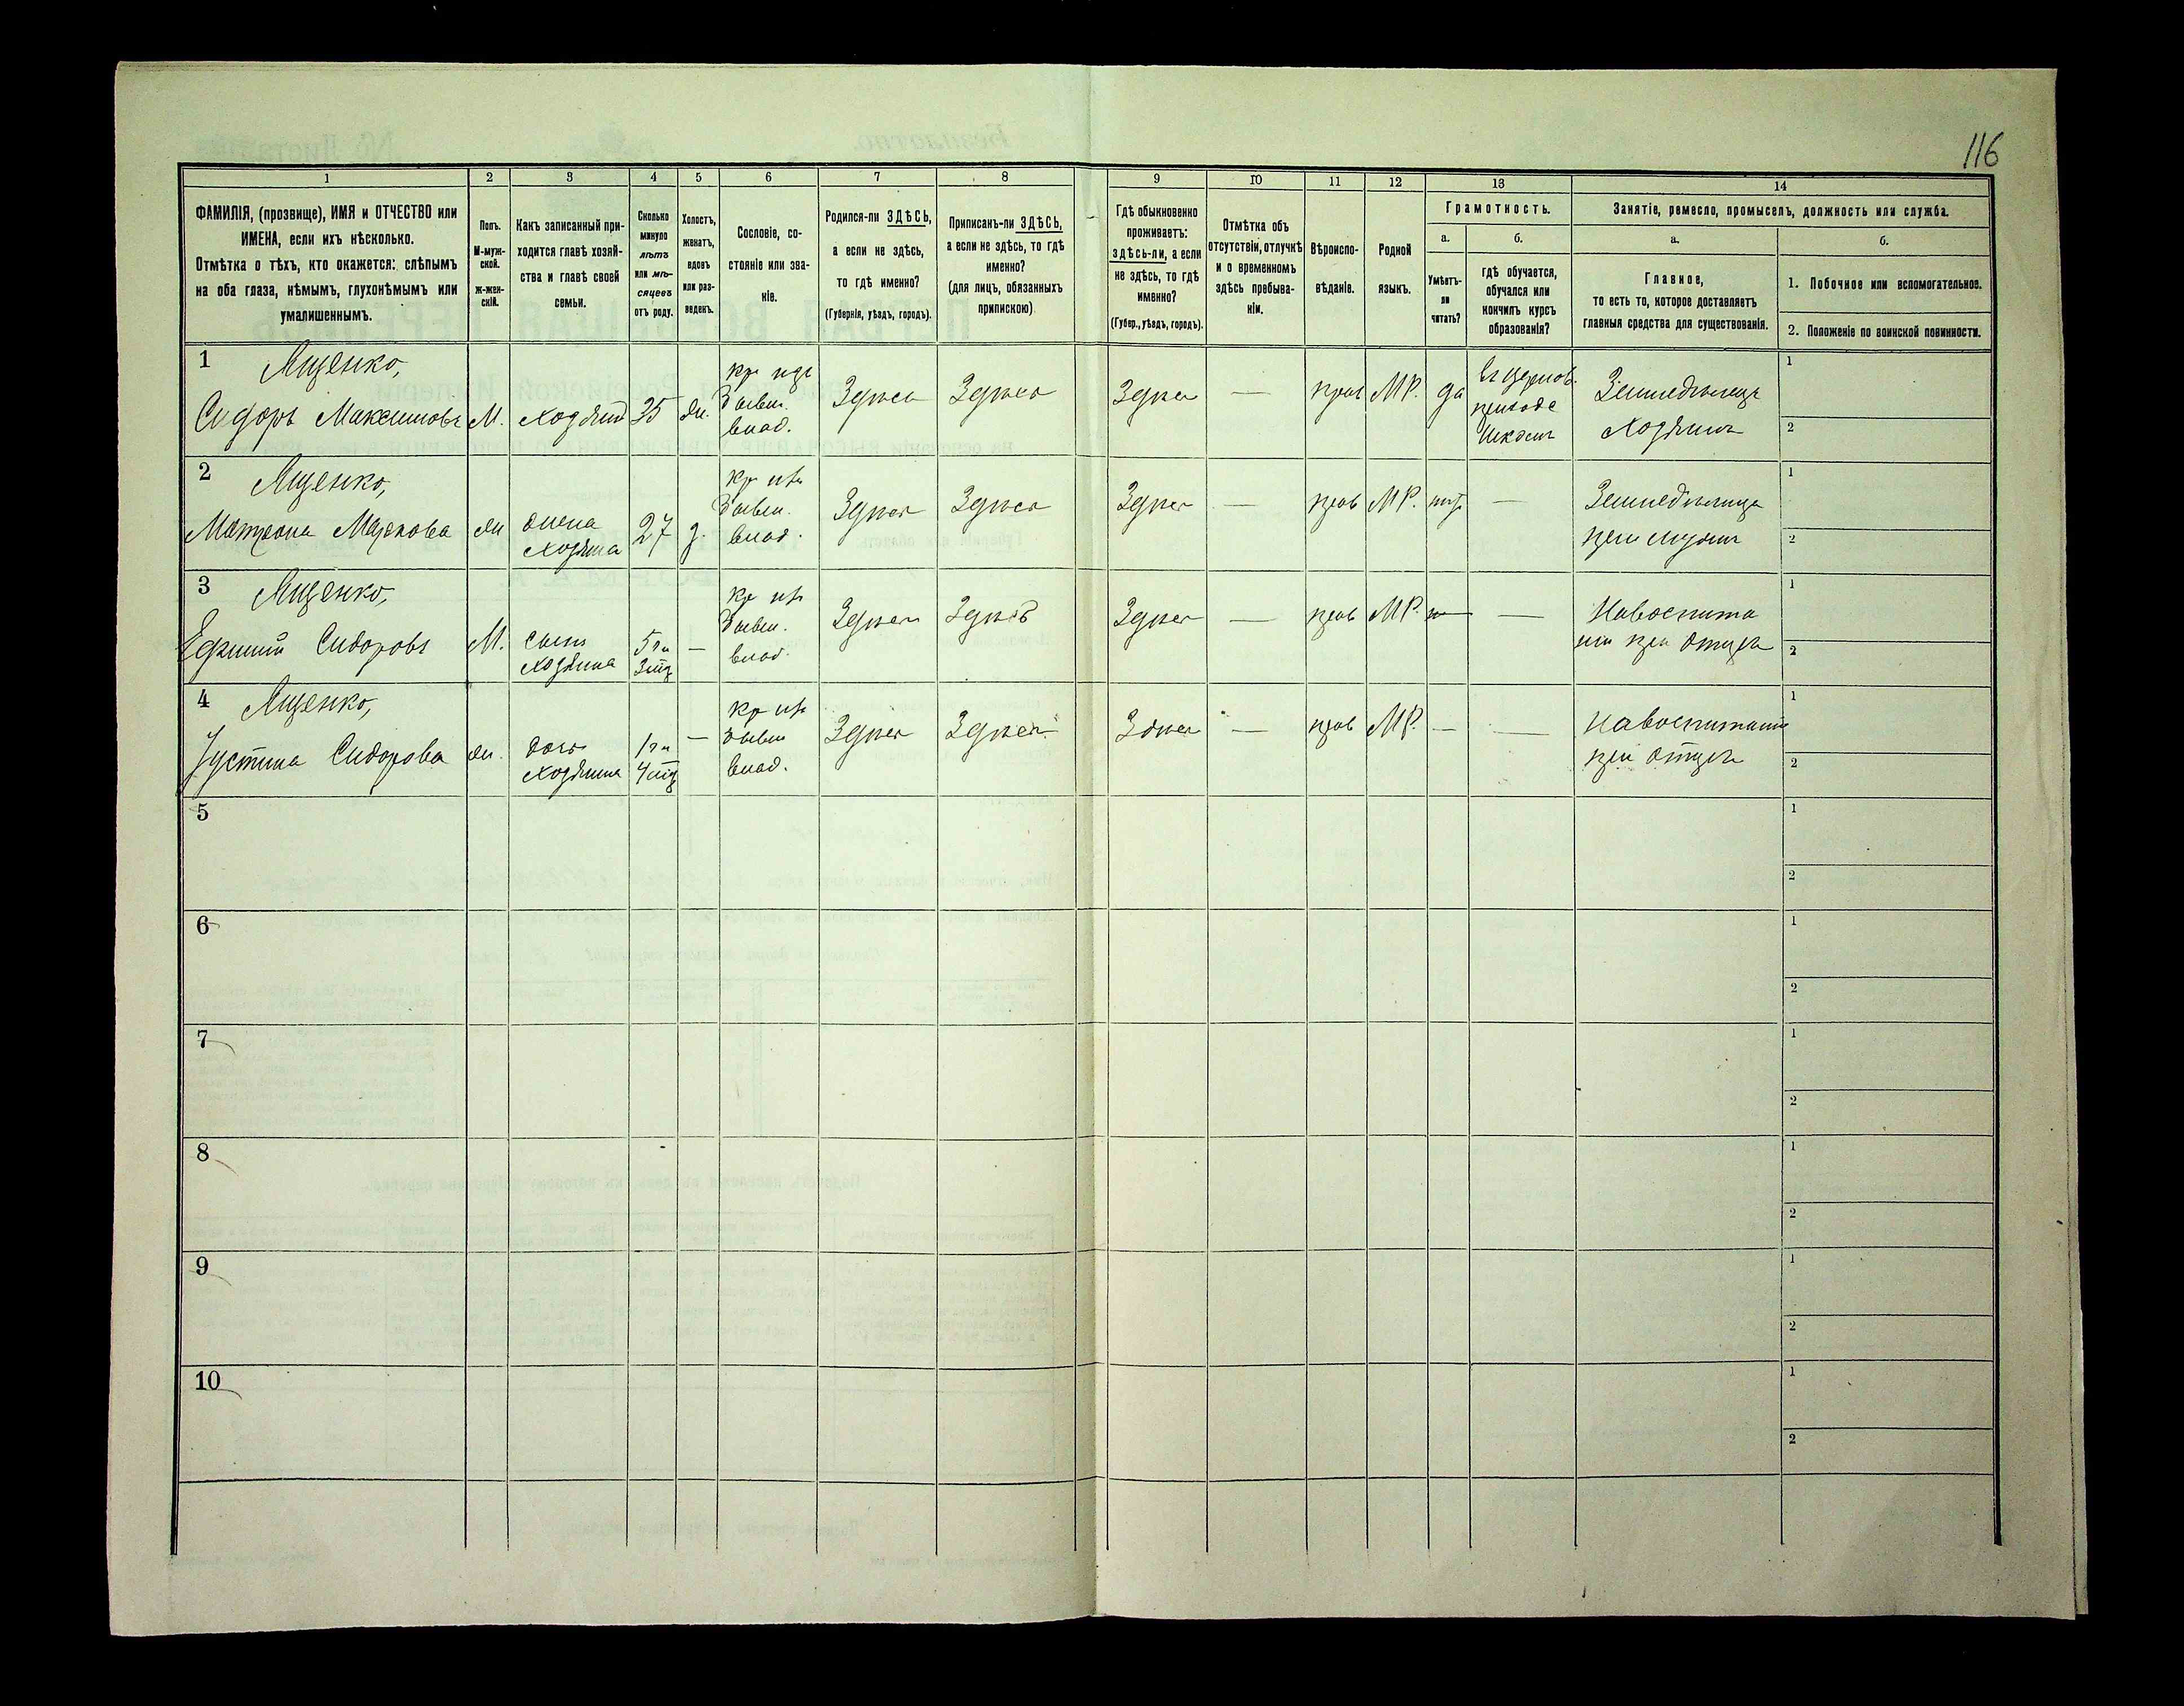 116
1 2 3 4 5 6 7 8 9 10 11 12 13 14
ФАМИЛІЯ, (прозвище), ИМЯ и ОТЧЕСТВО или
ИМЕНА, если ихъ нѣсколько.
Отмѣтка о тѣхъ, кто окажется: слѣпымъ
на оба глаза, нѣмымъ, глухонѣмымъ или
умалишеннымъ.
Полъ.
М-муж-
ской.
ж-жен-
скій.
Какъ записанный при-
ходится главѣ хозяй-
ства и главѣ своей
семьи.
Сколько
минуло
лѣтъ
или мѣ-
сяцевъ
отъ роду.
Холостъ,
женатъ,
вдовъ
или раз-
веденъ.
Сословіе, со-
стояніе или зва-
ніе.
Родился-ли ЗДѢСЬ,
а если не здѣсь,
то гдѣ именно?
(Губернія, уѣздъ, городъ).
Приписанъ-ли ЗДѢСЬ,
а если не здѣсь, то гдѣ
именно?
(для лицъ, обязанныхъ
припискою)
Гдѣ обыкновенно
проживаетъ:
здѣсь-ли, а если
не здѣсь, то гдѣ
именно?
(Губер., уѣздъ, городъ).
Отмѣтка объ
отсутствіи, отлучкѣ
и о временномъ
здѣсь пребыва-
ніи.
Вѣроиспо-
вѣданіе.
Родной
языкъ.
Грамотность.
а.
Умѣетъ-
ли
читать?
б.
гдѣ обучается,
обучался или
кончилъ курсъ
образованія?
Занятіе, ремесло, промыселъ, должность или служба.
а.
Главное,
то есть то, которое доставляетъ
главныя средства для существованія.
б.
1. Побочное или вспомогательное.
2. Положеніе по воинской повинности.
1 Ященко,
Сидоръ Максимовъ М. хозяинъ 35 жн.
влад.
Здѣсь Здѣсь Здѣсь — прав МР. да
школѣ
Земледѣлецъ
хозяинъ
1
2
2 Ященко,
Матрона Маркова жн жена
хозяина 27 з.
влад.
Здѣсь Здѣсь Здѣсь — прав МР. —
Земледѣлица
при мужѣ
1
2
3 Ященко,
Ефимій Сидоровъ М. сынъ
хозяина
влад.
— Здѣсь Здѣсь Здѣсь — прав МР. —
при отцѣ
1
2
4 Ященко,
Устина Сидорова жн. дочь
хозяина
влад.
— Здѣсь Здѣсь Здѣсь — прав МР. — —
при отцѣ
1
2
5
1
2
6
1
2
7
1
2
8
1
2
9
1
2
10
1
2